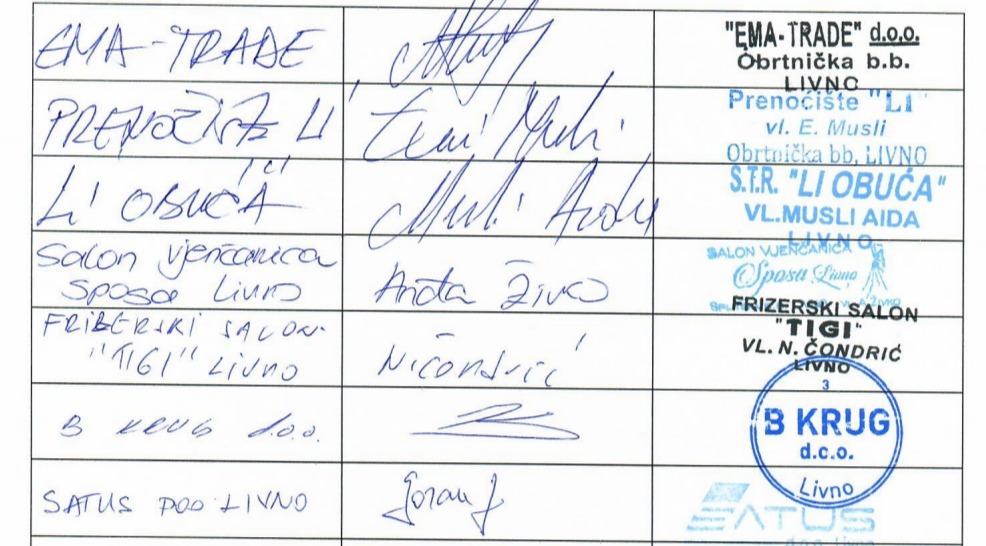 EMA-TRADE
"EMA-TRADE" d.o.o.
Obrtnička b.b.
LIVNO
PRENOĆIŠTE LI
Prenoćište "LI"
vl. E. Musli
Obrtnička bb, LIVNO
LI OBUĆA
Musli Aida
S.T.R. "LI OBUĆA"
VL.MUSLI AIDA
LIVNO
Salon vjenčanica
Sposa Livno
Aneta Živko
SALON VJENČANICA
Sposa Livno
FRIZERSKI SALON
"TIGI" LIVNO
N.Čondrić
FRIZERSKI SALON
"TIGI"
VL. N. ČONDRIĆ
LIVNO
B KRUG d.o.o.
3
B KRUG
d.o.o.
Livno
SATUS DOO LIVNO
Goran
SATUS